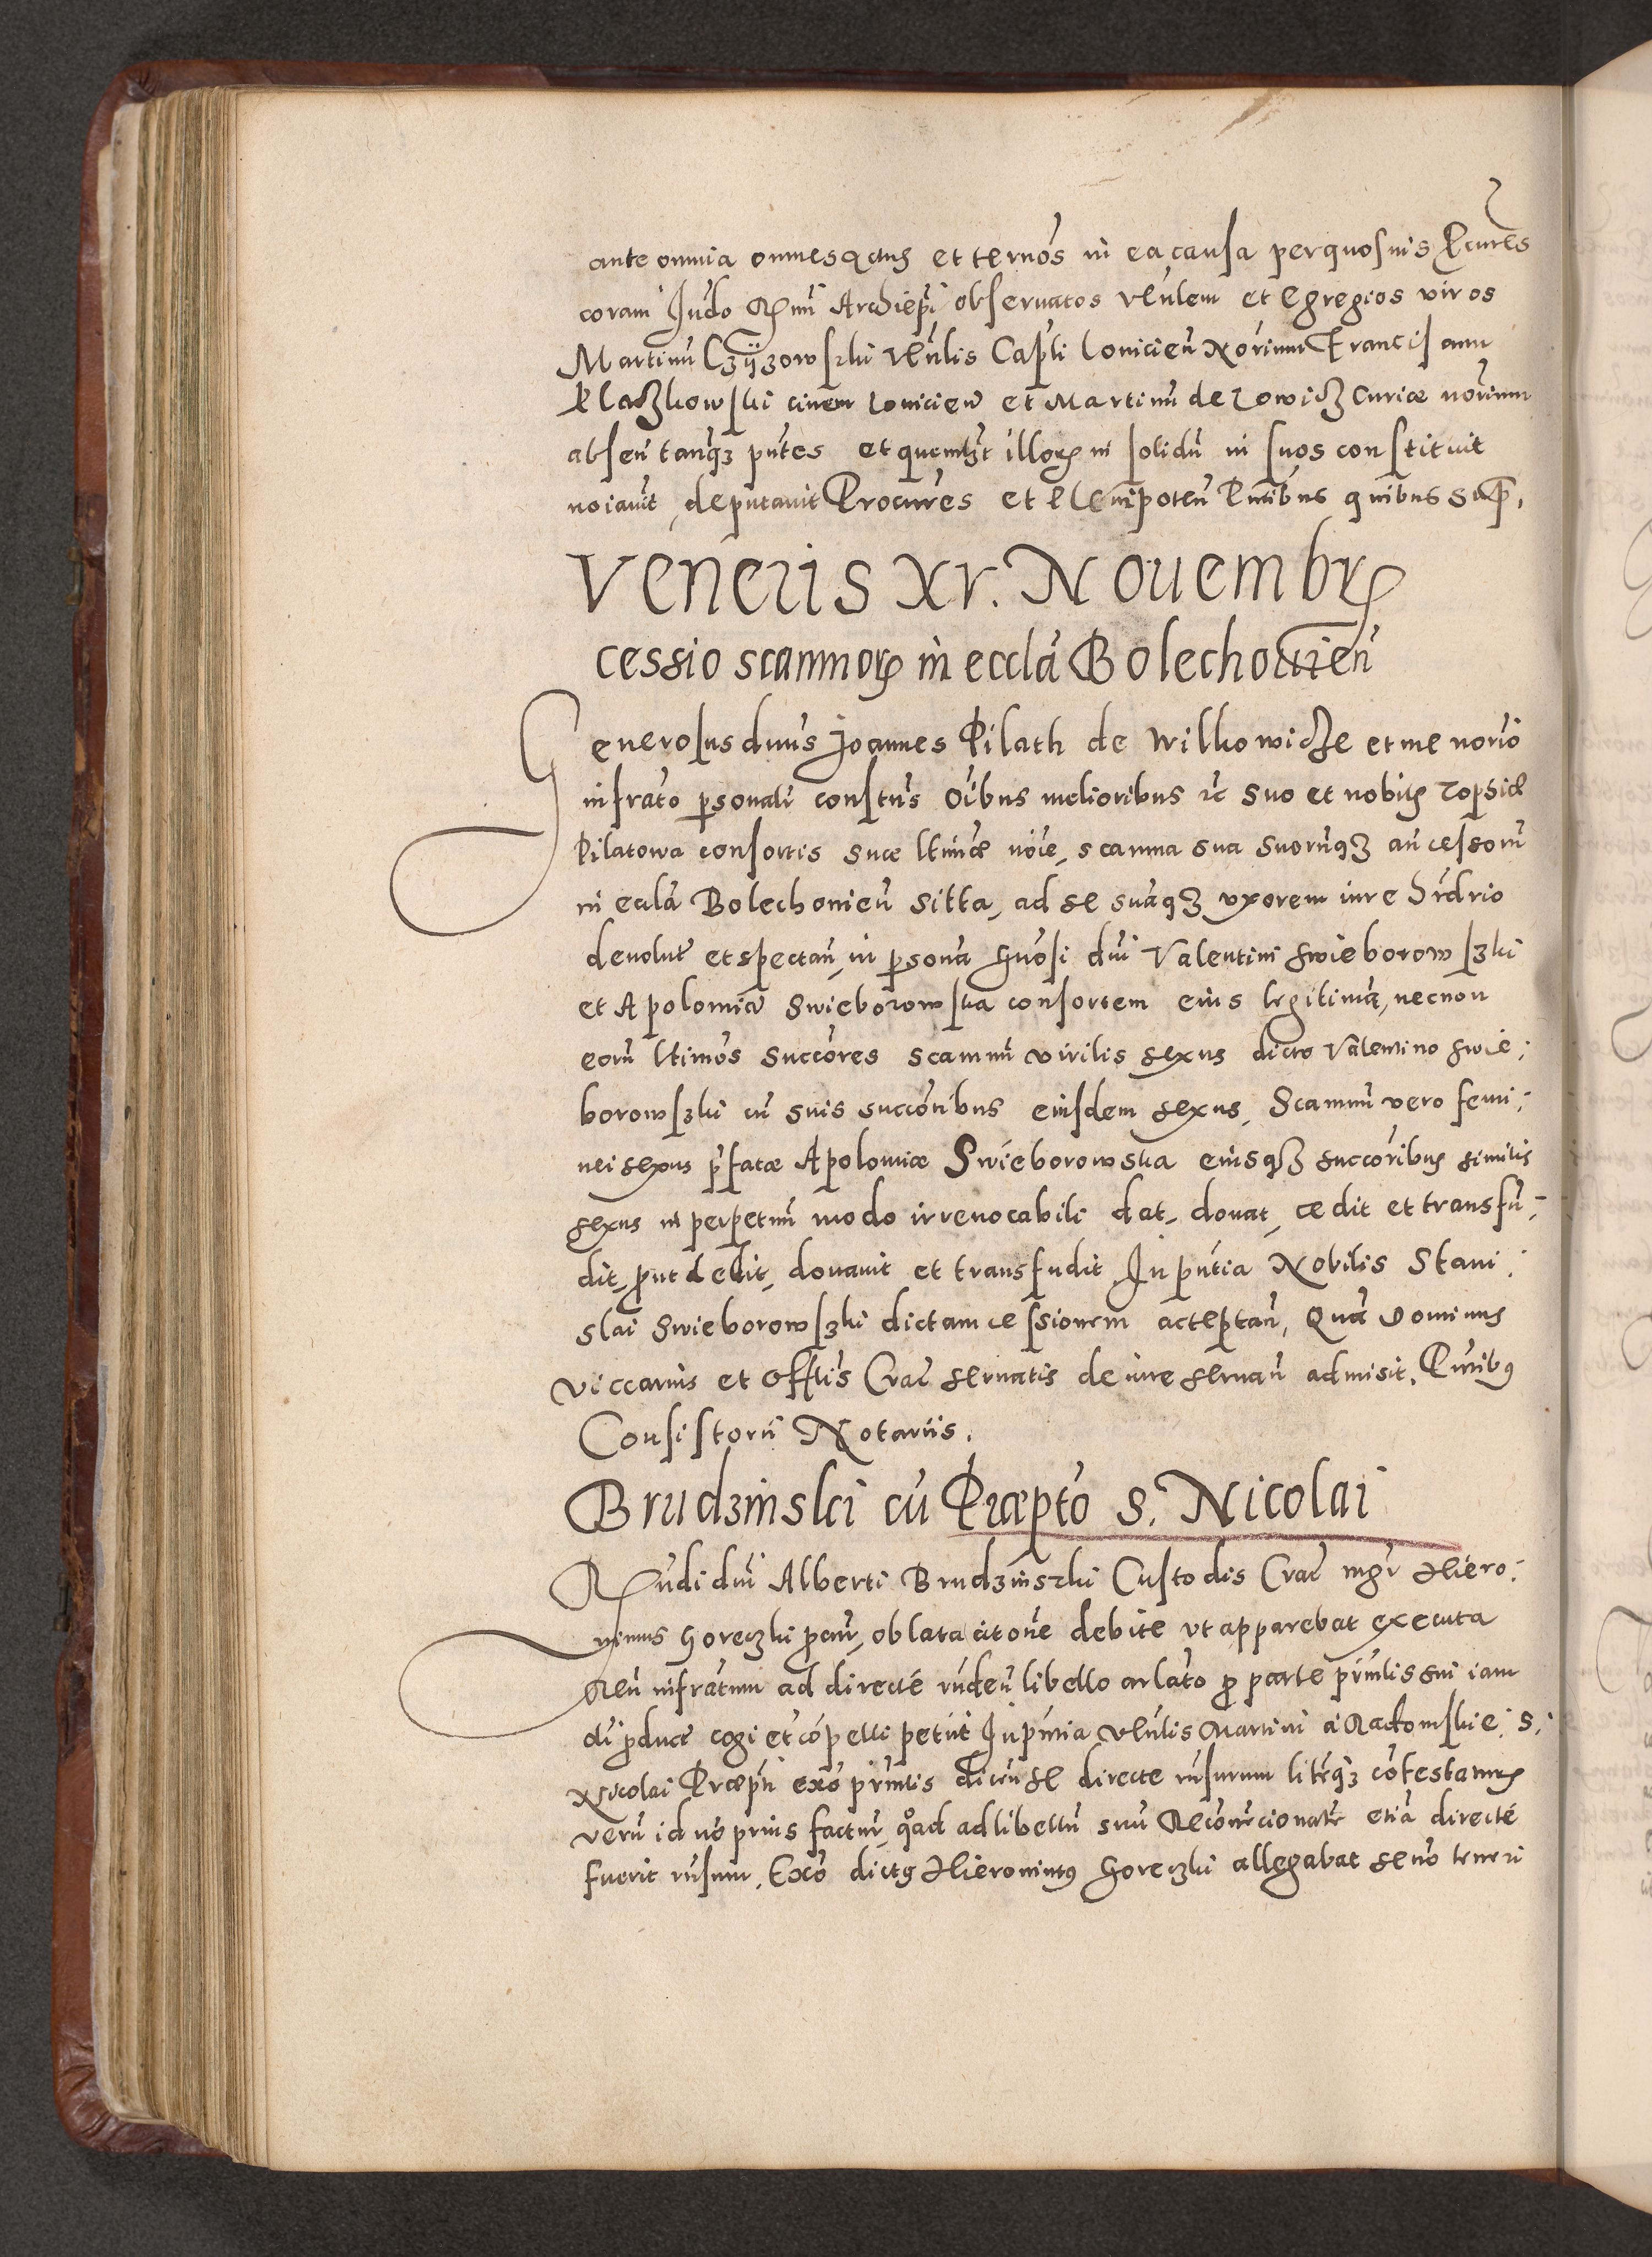 ante omnia omnes actus et ternōs in ea causa per quosuis Procures
coram Judō Rmi Archiepi obseruatos Venlem et Egregios viros
Martinū Czÿzowski Venlis Capli Louicień Norium Franciscum
Klaczkowski ciuem Louicień et Martinū de Lowicz Curiæ norium
absen tanq̄ pntes et quemlꝫt illoꝝ in solidū in suos constituit
noiauit, deputauit Procures et Plenipoteń Pntibus quibus supͣ.
Veneris XV. Nouembrꝭ
Cessio scamnoꝝ in ecclā Bolechouień
Generosus dnus Joannes Pilath de Wilkowicze et me norio
infrato personalr constus oibus melioribus &c suo et nobilis Zophiæ
Pilatowa consortis suæ ltimæ noie, scamna sua suorūqꝫ ancessorū
in ecclā Bolechouień sitta, ad se suāqꝫ uxorem iure hrdrio
deuolut et spectań, in personā Gnosi dni Valentini Swieborowski
et Apoloniā Swieborowska consortem eius legitimā, necnon
eorū ltimos succōres scamnū virilis sexus dicto Valentino Swie:
borowski cū suis succoribus eiusdem sexus, Scamnū vero femi:
nei sexus pr̄fatæ Apoloniæ Swieborowska eiusqꝫ succoribus similis
sexus in perpetuū modo irreuocabili dat, donat, cedit et transfū:
dit, prout dedit, donauit et transfudit In pn̄tia Nobilis Stani:
slai Swieborowski dictam cessionem acceptań, Quā Dominus
Viccarius et Offtis Crać seruatis de iure seruań admisit. Pn̄tibꝰ
Consistorii Notariis.
Brudzinski cū Præpto S. Nicolai
Rūdi dni Alberti Brudzinski Custodis Crać mgr Hiero:
nimus Goreczki procur, oblata citōne debite vt apparebat executa
Reū infratum ad directé rńdeń libello arlato pro parte prinlis sui iam
dū product cogi et cōpelli petiit In pn̄tia Venlis Martini à Radomskie: S.
Nicolai Præpti exō prinlis diceń se directe rńsurum litēqꝫ cōtestaturꝫ
verū id nō prius factur, quad ad libellū suū Recōnuencionale etiā directé
fuerit rńsum. Exō dictꝰ Hieronimꝰ Goreczki allegabat se nō teneri